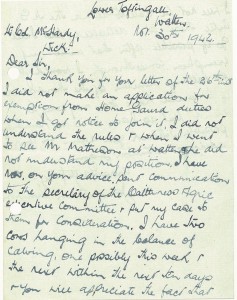 Lower Toftingall,
Watten,
Nov. 30th 1942.
McHardy,
Wick.
Dear Sir,
I thank you for your letter of the 26th
I did not make an application for
exemption from Home Guard duties
when I got notice to join it, I did not
understand the rules & when I went
to see Mr Matheson at Watten he did
not understand my position, I have
now, on your advice, sent communication
to the secretary of the Caithness Agric
executive committee & put my case to
them for consideration. I have two
cows hanging in the balance of
calving, one possibly this week &
the next within the next ten days
& you will appreciate the fact that